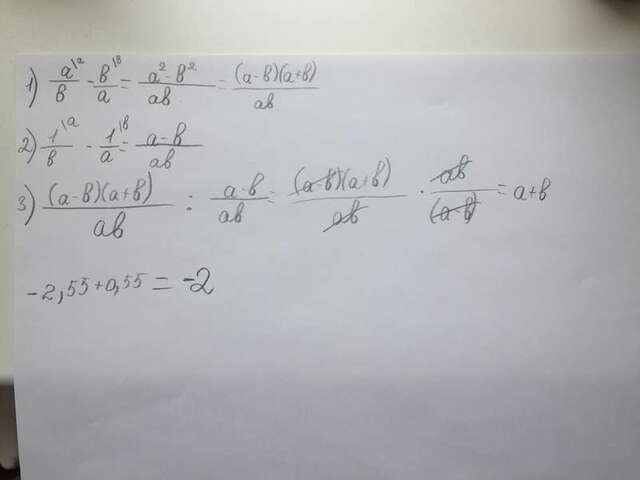 1) a^{\a}/в - в^{\в}/a = a²-в²/aв = (a-в)(a+в)/aв
2) 1^{\a}/в - 1^{\в}/a = a-в/aв
3) (a-в)(a+в)/aв : a-в/aв = (a-в)(a+в)/aв · aв/(a-в) = a+в
-2,55+0,55 = -2